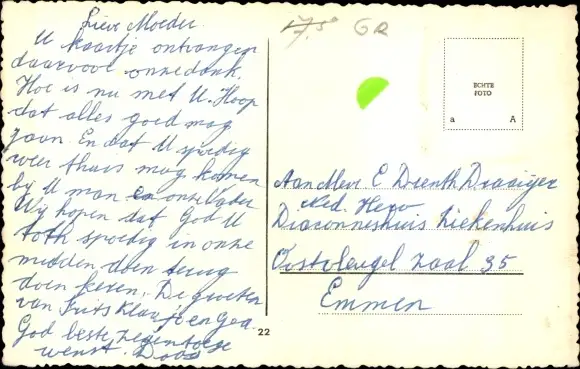 Lieve Moeder
U kaartje ontvangen
daarvoor onze dank.
Hoe is nu met U. Hoop
dat alles goed mag
gaan. En dat U spoedig
weer thuis mag komen
by U man en onze Vader
Wij hopen dat God U
toth spoedig in onze
midden doen terug
doen keren. De groeten
van Frits Klaasje en Gea
God beste zegen toege
wenst. Doos
7,50 GR
ECHTE
FOTO
a A
Aan Mevr E Drenth Draaijer
Ned. Herv
Diaconneshuis Ziekenhuis
Oostvleugel zaal 35
Emmen
22